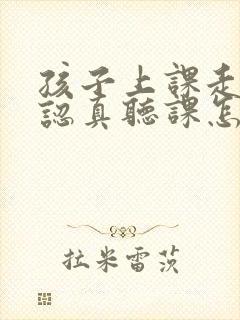 孩子上課走
認真聽課怎
拉米雷茨